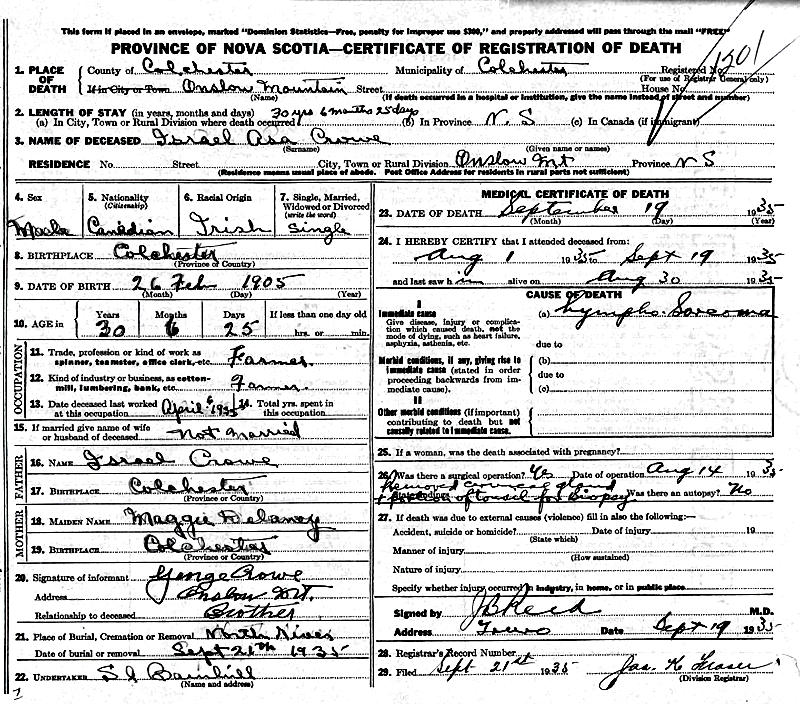 This form if placed in an envelope, marked "Dominion Statistics—Free, penalty for improper use $300," and properly addressed will pass through the mail "FREE"
PROVINCE OF NOVA SCOTIA—CERTIFICATE OF REGISTRATION OF DEATH
1301
1. PLACE OF DEATH County of Colchester Municipality of Colchester Registered No.
(For use of Registrar General only)
If in City or Town Onslow Mountain Street House No.
(Name) (If death occurred in a hospital or institution, give the name instead of street and number)
2. LENGTH OF STAY (in years, months and days) 30 yrs 6 months 25 days
(a) In City, Town or Rural Division where death occurred (b) In Province N. S (c) In Canada (if immigrant)
3. NAME OF DECEASED Israel Asa Crowe
(Surname) (Given name or names)
RESIDENCE No. Street City, Town or Rural Division Onslow Mt Province N S
(Residence means usual place of abode. Post Office Address for residents in rural parts not sufficient)
4. Sex 5. Nationality (Citizenship) 6. Racial Origin 7. Single, Married, Widowed or Divorced (write the word)
Male Canadian Irish Single
8. BIRTHPLACE Colchester
(Province or Country)
9. DATE OF BIRTH 26 Feb 1905
(Month) (Day) (Year)
10. AGE in Years Months Days If less than one day old
30 6 25 hrs. or min.
OCCUPATION
11. Trade, profession or kind of work as spinner, teamster, office clerk, etc. Farmer
12. Kind of industry or business, as cotton-mill, lumbering, bank, etc. Farmer
13. Date deceased last worked at this occupation April 1935 14. Total yrs. spent in this occupation
15. If married give name of wife or husband of deceased Not Married
FATHER
16. NAME Israel Crowe
17. BIRTHPLACE Colchester
(Province or Country)
MOTHER
18. MAIDEN NAME Maggie Delaney
19. BIRTHPLACE Colchester
(Province or Country)
20. Signature of informant George Crowe
Address Onslow Mt.
Relationship to deceased Brother
21. Place of Burial, Cremation or Removal North River
Date of burial or removal Sept 21th 1935
22. UNDERTAKER
(Name and address)
MEDICAL CERTIFICATE OF DEATH
23. DATE OF DEATH September 19 1935
(Month) (Day) (Year)
24. I HEREBY CERTIFY that I attended deceased from:
Aug 1 1935 to Sept 19 1935
and last saw him alive on Aug 30 1935
CAUSE OF DEATH
I
Immediate cause
Give disease, injury or complication which caused death, not the mode of dying, such as heart failure, asphyxia, asthenia, etc.
(a) Lympho Sarcoma
due to
Morbid conditions, if any, giving rise to immediate cause (stated in order proceeding backwards from immediate cause).
(b)
due to
(c)
II
Other morbid conditions (if important) contributing to death but not causally related to immediate cause.
25. If a woman, was the death associated with pregnancy?
26. Was there a surgical operation? Yes Date of operation Aug 14 1935
Removed cervical gland
State findings portion of tonsil for Biopsy Was there an autopsy? No
27. If death was due to external causes (violence) fill in also the following:—
Accident, suicide or homicide? Date of injury 19
(State which)
Manner of injury
(How sustained)
Nature of injury
Specify whether injury occurred in industry, in home, or in public place
Signed by J B Reid M.D.
Address Truro Date Sept 19 1935
28. Registrar's Record Number
29. Filed Sept 21st 1935 Jas. K Fraser
(Division Registrar)